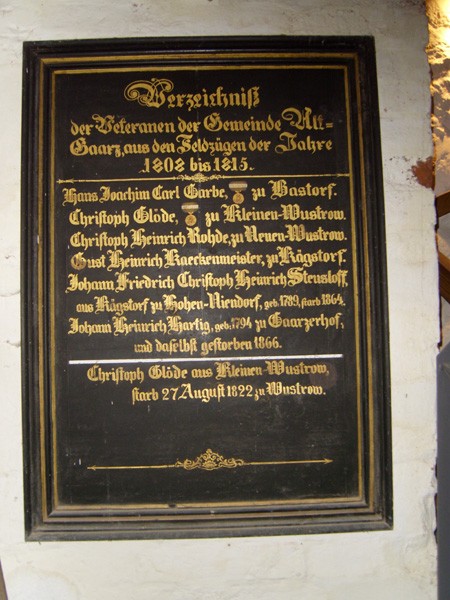 Verzeichniß
der Veteranen der Gemeinde Alt=
Gaarz, aus den Feldzügen der Jahre
1808 bis 1815.
Hans Joachim Carl Garbe, zu Bastorf.
Christoph Glöde, zu Kleinen-Wustrow.
Christoph Heinrich Rohde, zu Neuen-Wustrow.
Gust Heinrich Kaeckenmeister, zu Kägstorf.
Johann Friedrich Christoph Heinrich Stensloff,
aus Kägstorf zu Hohen-Niendorf, geb. 1789, starb 1864.
Johann Heinrich Hartig, geb. 1794 zu Gaarzerhof,
und daselbst gestorben 1866.
Christoph Glöde aus Kleinen-Wustrow,
starb 27 August 1822 zu Wustrow.